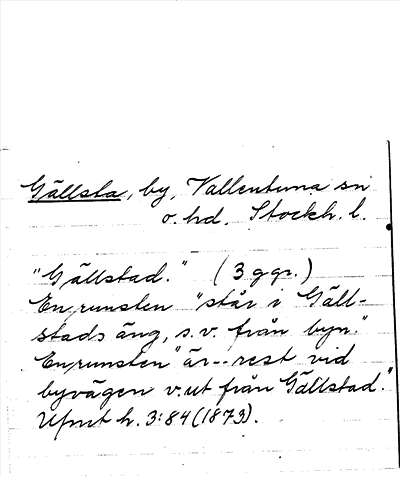 Gällsta, by, Vallentuna sn
o. hd. Stockh. l.
"Gällstad." (3 ggr.)
En runsten "står i Gäll-
stads äng, s.v. från byn."
En runsten "är -- rest vid
byvägen v.ut från Gällstad."
Ufmt h. 3:84 (1873).